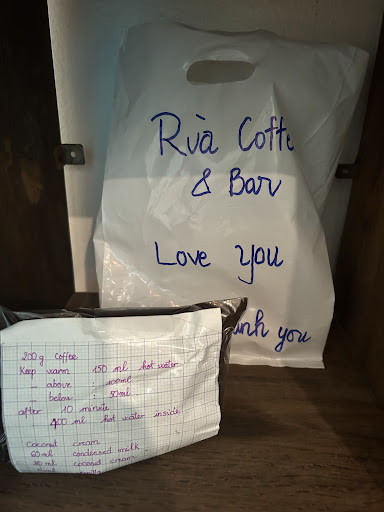 Rùà Coffe
& Bar
Love you
ank you
200g Coffee
Keep warm 150 ml hot water
_ above : 100ml
_ below : 50ml
after 10 minute
400 ml hot water inside
Coconut cream
60 ml condensed milk
coconut cream